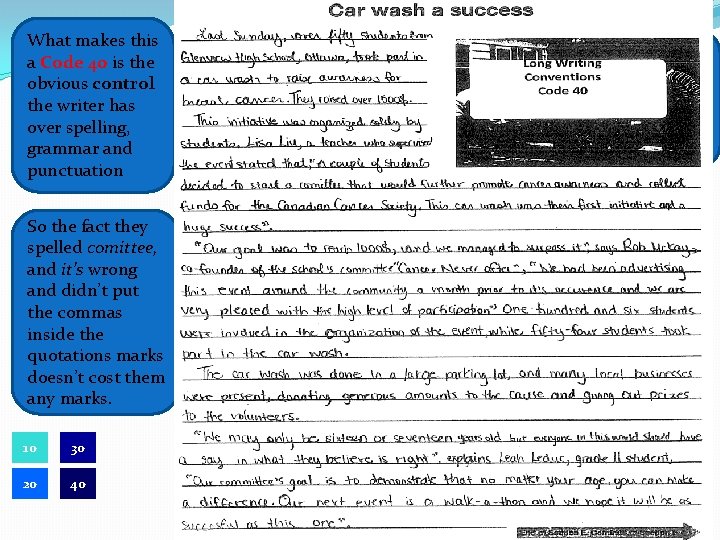 Car wash a success
What makes this
a Code 40 is the
obvious control
the writer has
over spelling,
grammar and
punctuation
So the fact they
spelled comittee,
and it's wrong
and didn't put
the commas
inside the
quotations marks
doesn't cost them
any marks.
10 30
20 40
Long Writing
Conventions
Code 40
Last Sunday, over fifty students from
Glenview High School, Ottawa, took part in
a car wash to raise awareness for
breast cancer. They raised over 1500$.
This initiative was organized solely by
students. Lisa Liu, a teacher who supervised
the event stated that, "A couple of students
decided to start a comittee that would further promote cancer awareness and collect
funds for the Canadian Cancer Society. This car wash was their first initiative and a
huge success".
"Our goal was to raise 1000$, and we managed to surpass it", says Rob McKay,
co-founder of the school's committee "Cancer Never after", "We had been advertising
this event around the community a month prior to it's occurence and we are
very pleased with the high level of participation" One hundred and six students
were involved in the organization of the event, while fifty-four students took
part in the car wash.
The car wash was done in a large parking lot, and many local businesses
were present, donating generous amounts to the cause and giving out prizes
to the volunteers.
"We may only be sixteen or seventeen years old but everyone in this world should have
a say in what they believe is right", explains Leah Leduc, grade 11 student,
"Our committee's goal is to demonstrate that no matter your age, you can make
a difference. Our next event is a walk-a-thon and we hope it will be as
succesful as this one".